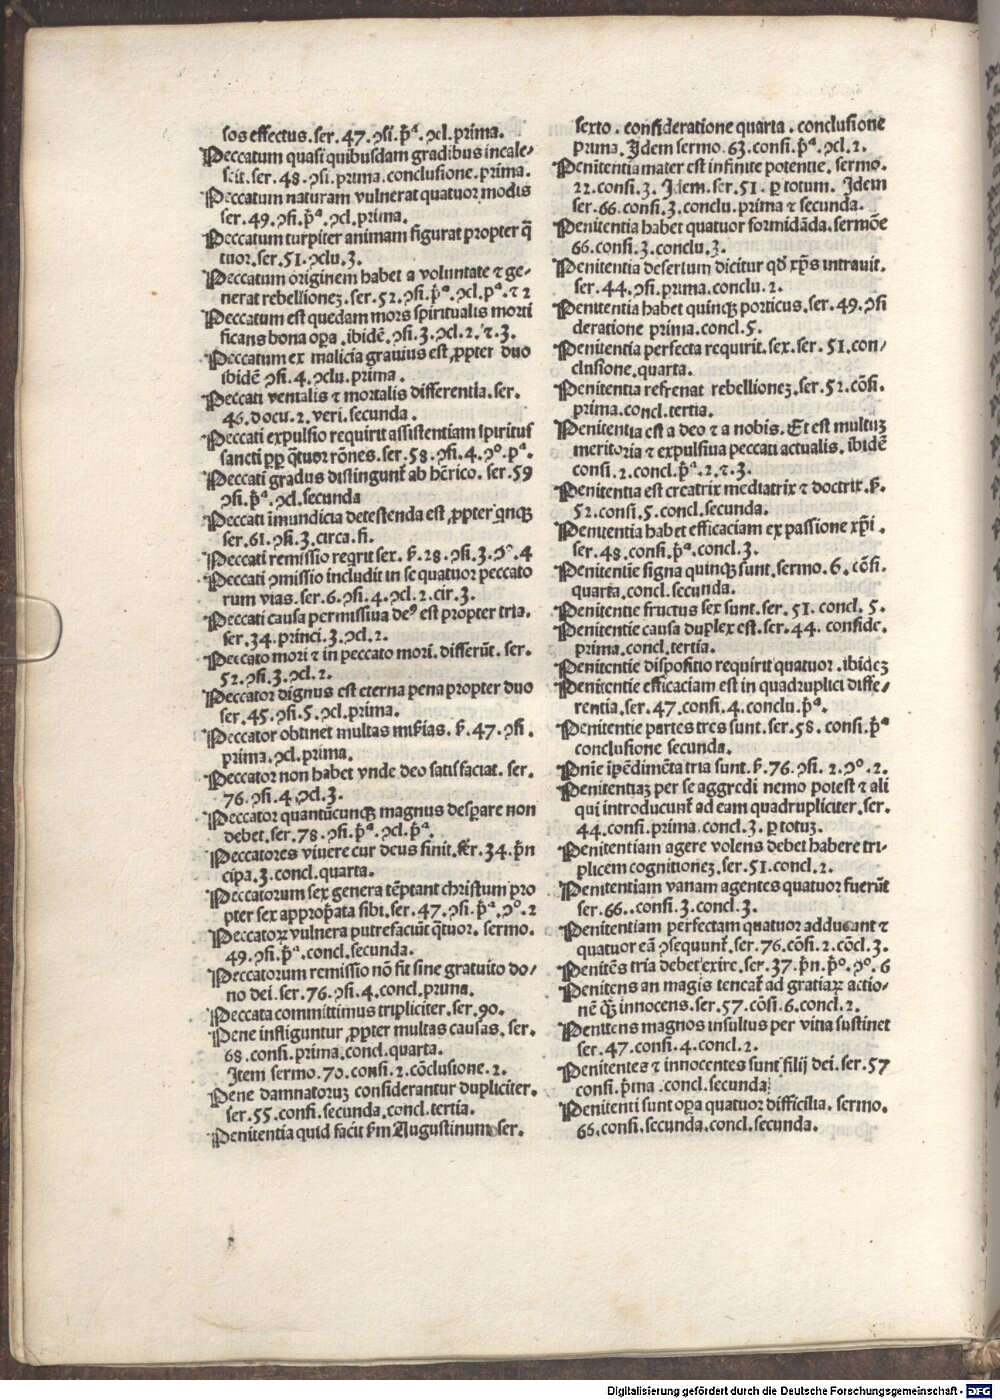 sos effectus. ser. 47. ꝯsi. p̄ª. ꝯcl. prima.
Peccatum quasi quibusdam gradibus incale-
scit. ser. 48. ꝯsi. prima. conclusione. prima.
Peccatum naturam vulnerat quatuor modis
ser. 49. ꝯsi. p̄ª. ꝯcl. prima.
Peccatum turpiter animam figurat propter q̄
tuor. ser. 51. ꝯclu. 3.
Peccatum originem habet a voluntate ⁊ ge-
nerat rebellioneꝫ. ser. 52. ꝯsi. p̄ª. ꝯcl. pª. ⁊ 2
Peccatum est quedam mors spiritualis morti
ficans bona oꝑa. ibidē. ꝯsi. 3. ꝯcl. 2. ⁊. 3.
Peccatum ex malicia grauius est ꝓpter duo
ibidē ꝯsi. 4. ꝯclu. prima.
Peccati venialis ⁊ mortalis differentia. ser.
46. docu. 2. veri. secunda.
Peccati expulsio requirit assistentiam spiritus
sancti ꝓp̄ q̄tuor rōnes. ser. 58. ꝯsi. 4. ꝯº. pª.
Peccati gradus distingunt̄ ab hērico. ser. 59
ꝯsi. p̄ª. ꝯcl. secunda
Peccati īmundicia detestenda est ꝓpter qnqꝫ
ser. 61. ꝯsi. 3. circa. fi.
Peccati remissio reqrit sex. s̄. 28. ꝯsi. 3. ꝯº. 4
Peccati ꝯmissio includit in se quatuor peccato
rum vias. ser. 6. ꝯsi. 4. ꝯcl. 2. cir. 3.
Peccati causa permissiua deꝰ est propter tria.
ser. 34. princi. 3. ꝯcl. 2.
Peccato mori ⁊ in peccato mori. differūt. ser.
52. ꝯsi. 3. ꝯcl. 2.
Peccator dignus est eterna pena propter duo
ser. 45. ꝯsi. 5. ꝯcl. prima.
Peccator obtinet multas mīas. s̄. 47. ꝯsi.
prima. ꝯcl. prima.
Peccator non habet vnde deo satisfaciat. ser.
76. ꝯsi. 4. ꝯcl. 3.
Peccator quantūcunqꝫ magnus desꝑare non
debet. ser. 78. ꝯsi. p̄ª. ꝯcl. p̄ª.
Peccatores viuere cur deus sinit. ser. 34. p̄n
cipa. 3. concl. quarta.
Peccatorum sex genera tēptant christum pro
pter sex appropͥata sibi. ser. 47. ꝯsi. p̄ª. ꝯº. 2
Peccatoꝝ vulnera putrefaciūt q̄tuor. sermo.
49. ꝯsi. p̄ª. concl. secunda.
Peccatorum remissio nō fit sine gratuito do-
no dei. ser. 76. ꝯsi. 4. concl. prima.
Peccata committimus tripliciter. ser. 90.
Pene infliguntur ꝓpter multas causas. ser.
68. consi. prima. concl. quarta.
Item sermo. 70. consi. 2. cōclusione. 2.
Pene damnatoruꝫ considerantur dupliciter.
ser. 55. consi. secunda. concl. tertia.
Penitentia quid facit s̄m Augustinum ser.
sexto. consideratione quarta. conclusione
prima. Idem sermo. 63. consi. p̄ª. ꝯcl. 2.
Penitentia mater est infinite potentie. sermo.
22. consi. 3. Idem. ser. 51. ꝑ totum. Idem
ser. 66. consi. 3. conclu. prima ⁊ secunda.
Penitentia habet quatuor formidāda. sermōe
66. consi. 3. conclu. 3.
Penitentia desertum dicitur qd̄ xp̄s intrauit.
ser. 44. ꝯsi. prima. conclu. 2.
Penitentia habet quinqꝫ porticus. ser. 49. ꝯsi
deratione prima. concl. 5.
Penitentia perfecta requirit. sex. ser. 51. con-
clusione. quarta.
Penitentia refrenat rebellioneꝫ. ser. 52. cōsi.
prima. concl. tertia.
Penitentia est a deo ⁊ a nobis. Et est multuꝫ
meritoria ⁊ expulsiua peccati actualis. ibidē
consi. 2. concl. p̄ª. 2. ⁊. 3.
Penitentia est creatrix mediatrix ⁊ doctrix. s̄.
52. consi. 5. concl. secunda.
Penitentia habet efficaciam ex passione xp̄i.
ser. 48. consi. p̄ª. concl. 3.
Penitentie signa quinqꝫ sunt. sermo. 6. cōsi.
quarta. concl. secunda.
Penitentie fructus sex sunt. ser. 51. concl. 5.
Penitentie causa duplex est. ser. 44. conside.
prima. concl. tertia.
Penitentie dispositio requirit quatuor. ibideꝫ
Penitentie efficaciam est in quadruplici diffe-
rentia. ser. 47. consi. 4. conclu. p̄ª.
Penitentie partes tres sunt. ser. 58. consi. p̄ª
conclusione secunda.
Pn̄ie īpedimēta tria sunt. s̄. 76. ꝯsi. 2. ꝯº. 2.
Penitentiaꝫ per se aggredi nemo potest ⁊ ali
qui introducunt̄ ad eam quadrupliciter. ser.
44. consi. prima. concl. 3. ꝑ totuꝫ.
Penitentiam agere volens debet habere tri-
plicem cognitioneꝫ. ser. 51. concl. 2.
Penitentiam vanam agentes quatuor fuerūt
ser. 66.. consi. 3. concl. 3.
Penitentiam perfectam quatuor adducunt ⁊
quatuor eā ꝯsequunt̄. ser. 76. cōsi. 2. cōcl. 3.
Penitēs tria debet exire. ser. 37. p̄n. p̄º. ꝯº. 6
Penitens an magis teneat̄ ad gratiaꝝ actio-
nē qꝫ̄ innocens. ser. 57. cōsi. 6. concl. 2.
Penitens magnos insultus per vitia sustinet
ser. 47. consi. 4. concl. 2.
Penitentes ⁊ innocentes sunt filij dei. ser. 57
consi. p̄ma. concl. secunda.
Penitenti sunt oꝑa quatuor difficilia. sermo.
66. consi. secunda. concl. secunda.
Digitalisierung gefördert durch die Deutsche Forschungsgemeinschaft - DFG